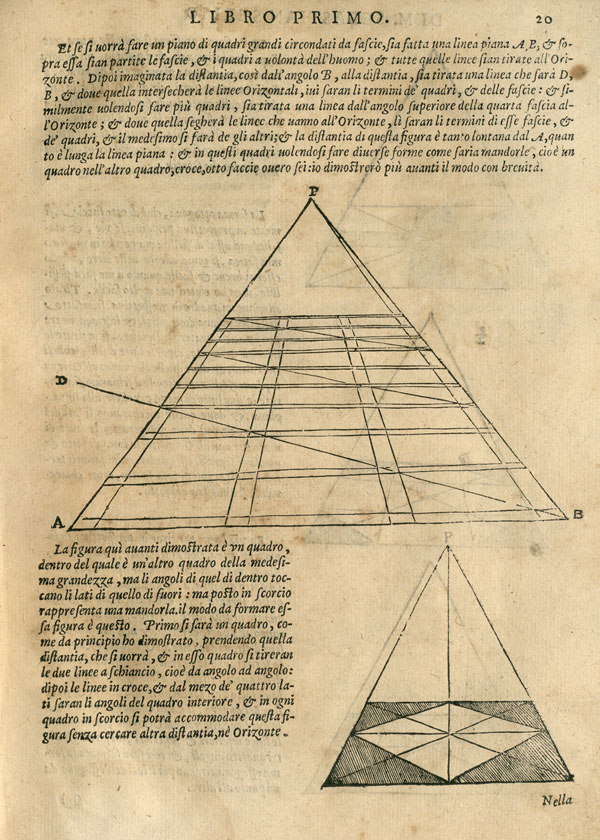 LIBRO PRIMO. 20
Et se si uorrà fare un piano di quadri grandi circondati da fascie, sia fatta una linea piana A, B, & so-
pra essa sian partite le fascie, & i quadri a uolontà dell'huomo; & tutte quelle linee sian tirate all'Ori-
zonte. Dipoi imaginata la distantia, così dall'angolo B, alla distantia, sia tirata una linea che sarà D,
B, & doue quella intersecherà le linee Orizontali, iui saran li termini de' quadri, & delle fascie: & si-
milmente uolendosi fare più quadri, sia tirata una linea dall'angolo superiore della quarta fascia al-
l'Orizonte; & doue quella segherà le linee che uanno all'Orizonte, lì saran li termini di esse fascie, &
de' quadri, & il medesimo si farà de gli altri; & la distantia di questa figura è tan'o lontana dal A, quan
to è lunga la linea piana: & in questi quadri uolendosi fare diuerse forme come saria mandorle, cioè un
quadro nell'altro quadro, croce, otto faccie ouero sei: io dimostrerò più auanti il modo con breuità.
P
D
A
B
La figura quì auanti dimostrata è vn quadro,
dentro del quale è un'altro quadro della medesi-
ma grandezza, ma li angoli di quel di dentro toc-
cano li lati di quello di fuori: ma posto in scorcio
rappresenta una mandorla. il modo da formare es-
sa figura è questo. Primo si farà un quadro, co-
me da principio ho dimostrato, prendendo quella
distantia, che si uorrà, & in esso quadro si tireran
le due linee a schiancio, cioè da angolo ad angolo:
dipoi le linee in croce, & dal mezo de' quattro la-
ti saran li angoli del quadro interiore, & in ogni
quadro in scorcio si potrà accommodare questa fi-
gura senza cercare altra distantia, nè Orizonte.
P
Nella